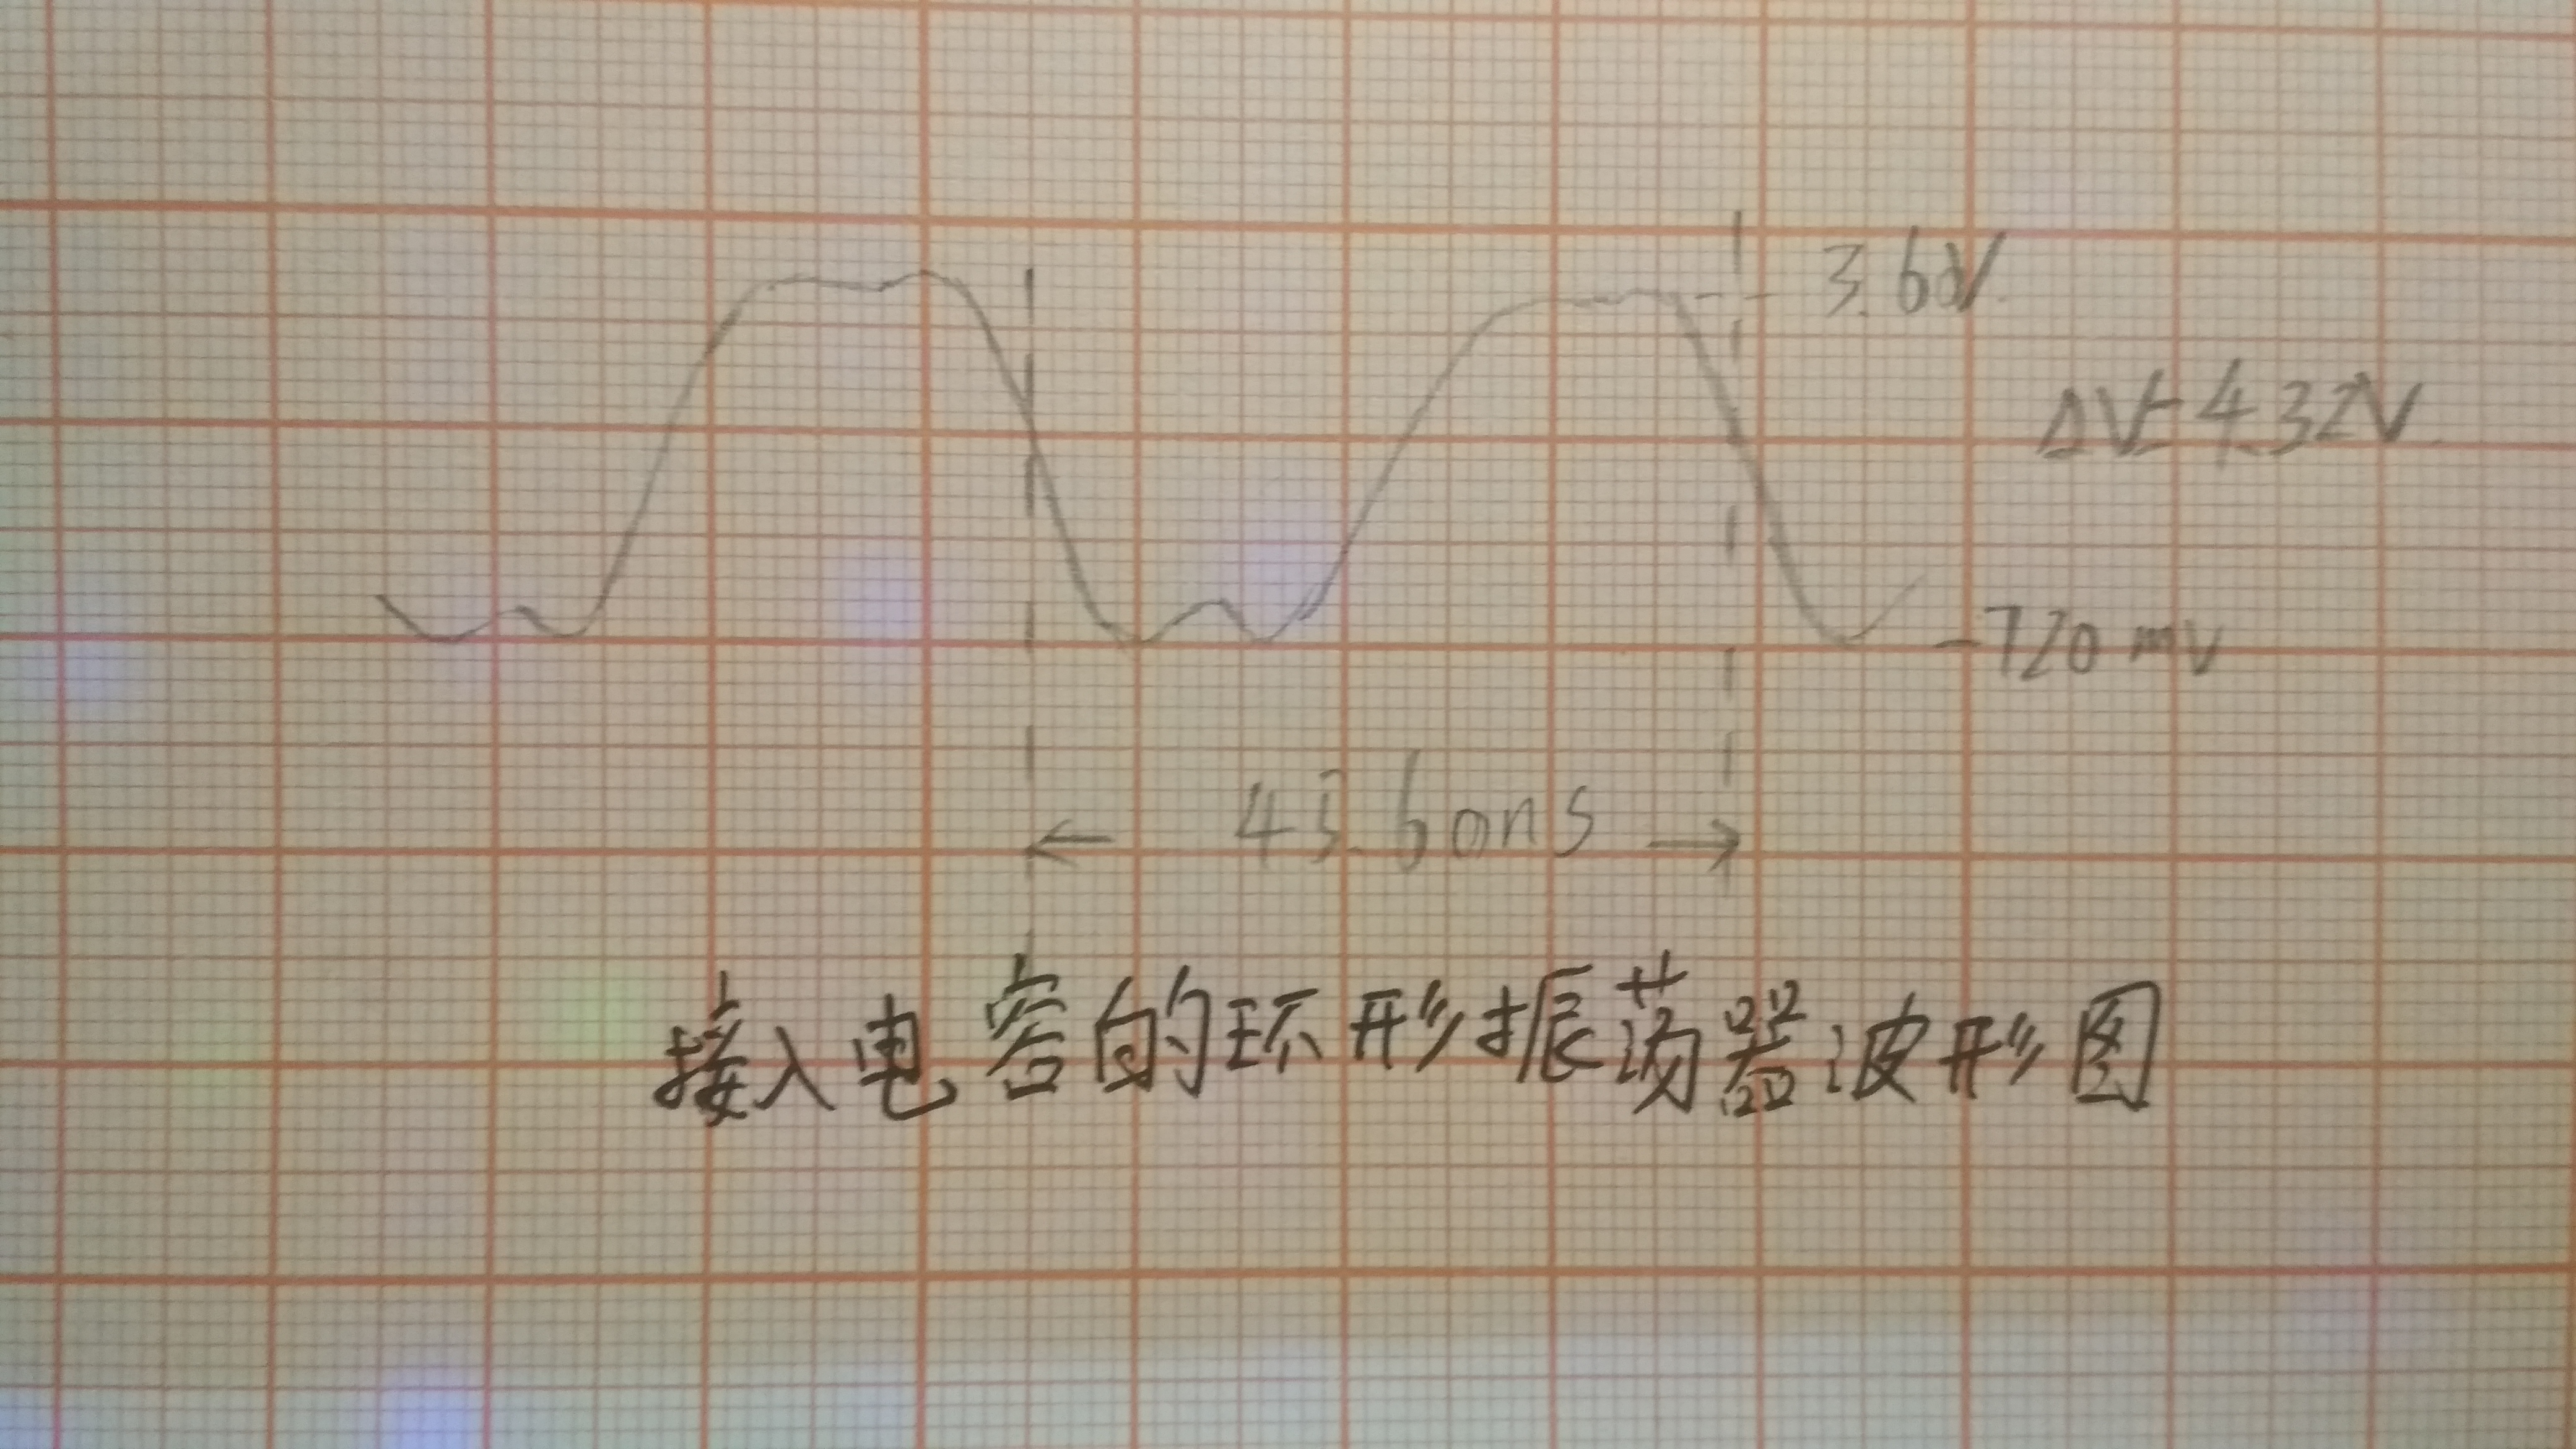 3.60V
ΔV=4.32V
-720mV
←43.60ns→
接入电容的环形振荡器波形图